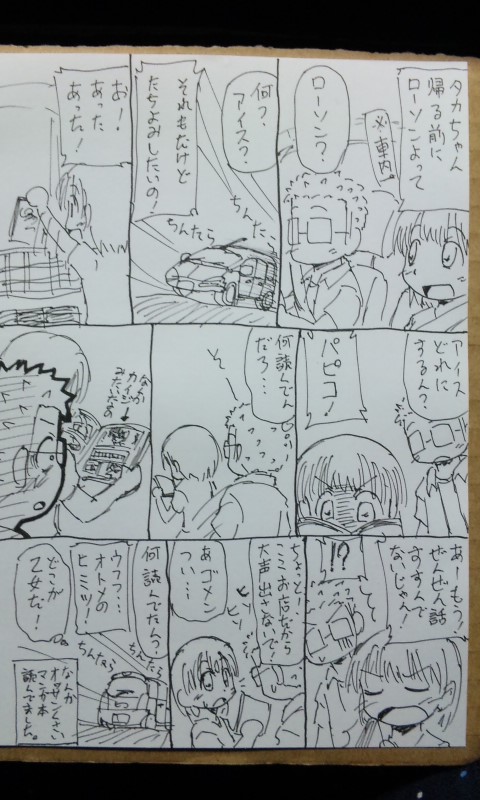 タカちゃん
帰る前に
ローソンよって
※車内。
ローソン?
何?
アイス?
それもだけど
たちよみしたいの!
ちんたら
ちんたら
お!
あった
あった!
アイス
どれに
するん?
パピコ!
何読んでん
だろ…
そ〜
なんか
カイジ
みたいだな
あーもう!
ぜんぜん話
すすんで
ないじゃん!
!?
ちょっと!
ここお店だから
大声出さないで!
ヒソ
ヒソ
あゴメン
つい…
何読んでたん?
ウフフ…
オトメの
ヒミツ!
ちんたら
ちんたら
どこが
乙女だ!
なんか
オッサンくさい
マンガ本
読んでました。